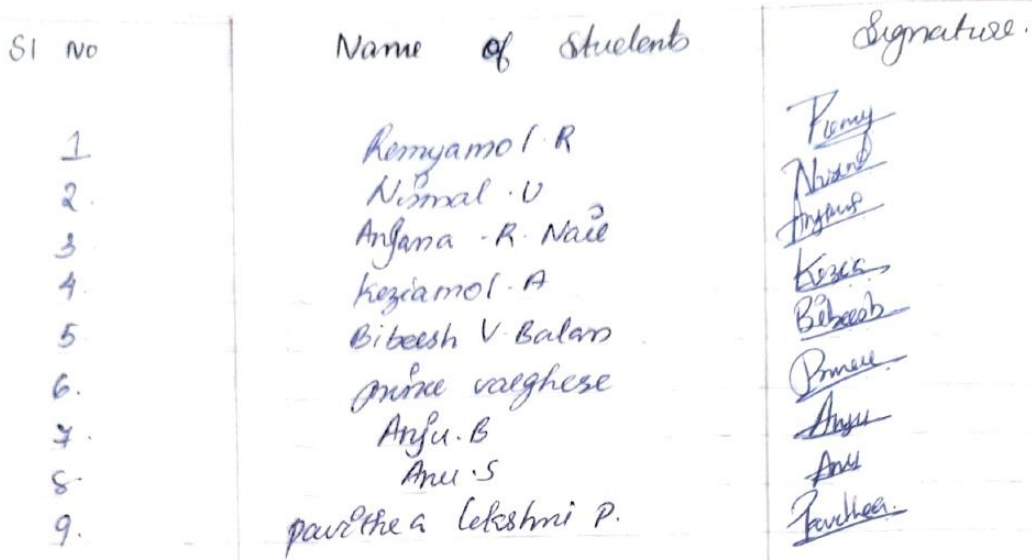 Sl No Name of Students Signature.
1 Remyamol R Remy
2. Nirmal . U
3 Anjana . R. Nair Anjana
4. Keziamol . A Kezia
5 Bibeesh V Balan Bibeesh
6. prince varghese Prince
7. Anju. B Anju
8. Anu . S Anu
9. pavithra lekshmi P. Pavithra.